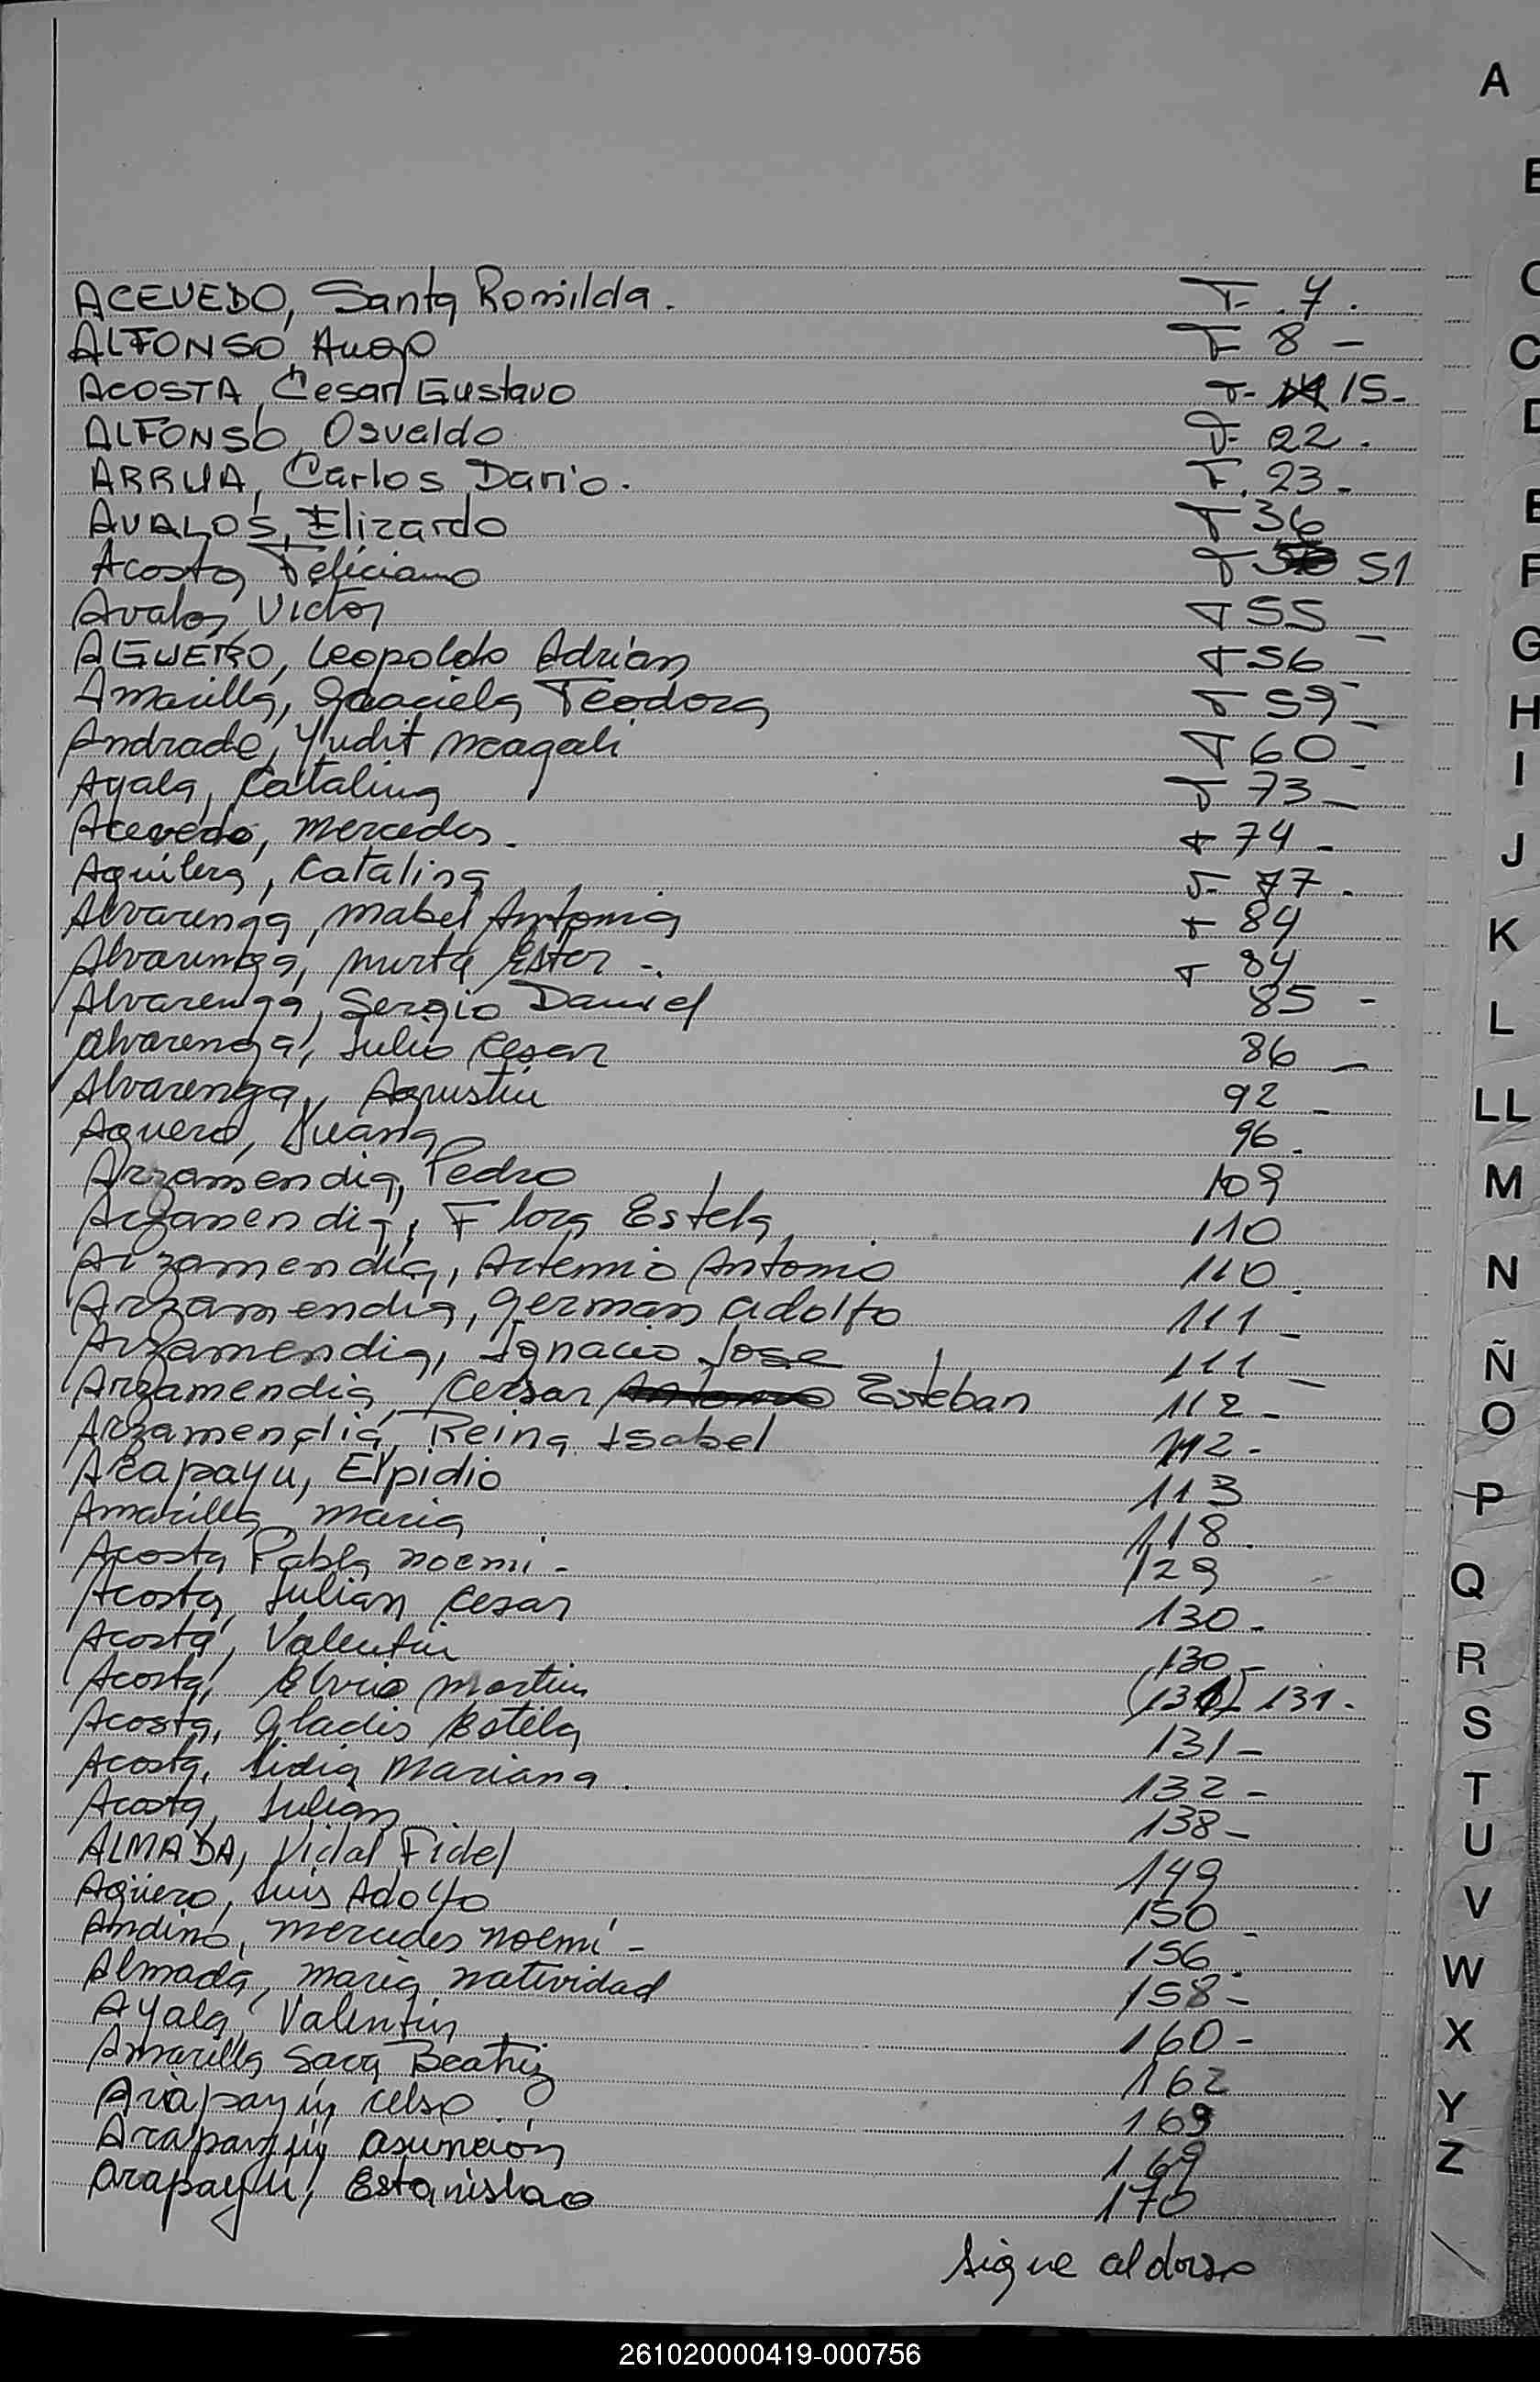 ACEVEDO, Santa Romilda. F. 7.
ALFONSO Hugo F 8 -
ACOSTA, Cesar Gustavo F- 15-
ALFONSO, Osvaldo F- 22.
ARRUA, Carlos Dario. F. 23-
AVALOS, Elizardo F 36
Acosta Feliciano F 51
Avalos, Victor F 55 -
AGUERO, Leopoldo Adrián F 56 -
Amarilla, Graciela Teodora F 59 -
Andrade, Yudit Magali F 60 -
Ayala, Catalina F 73 -
Acevedo, Mercedes. F 74 -
Aguilera, Catalina F- 77.
Alvarenga, Mabel Antonia F 84
Alvarenga, Mirta Ester -. F 84
Alvarenga, Sergio Daniel 85 -
Alvarenga, Julio Cesar 86 -
Alvarenga, Agustin 92 -
Aguero, Juana 96.
Arzamendia, Pedro 109
Arzamendia, Flora Estela 110
Arzamendia, Artemio Antonio 110.
Arzamendia, German Adolfo 111 -
Arzamendia, Ignacio Jose 111 -
Arzamendia, Cersar Antonio Esteban 112 -
Arzamendia, Reina Isabel 112 -
Arapayu, Elpidio 113
Amarilla, Maria 118.
Acosta Pabla Noemi - 129
Acosta, Julian Cesar 130 -
Acosta, Valentin 130 -
Acosta, Elvio Martin (131) 131 -
Acosta, Gladis Estela 131 -
Acosta, Lidia Mariana. 132 -
Acosta, Julian 138 -
ALMADA, Vidal Fidel 149
Agüero, Luis Adolfo 150 -
Andino, Mercedes Noemi - 156.
Almada, Maria Natividad 158 -
Ayala, Valentin 160 -
Amarilla Sara Beatriz 162
Arapayu, Celso. 169
Arapayu, Asuncion 169
Arapayu, Estanislao 170
Sigue al dorso
A
B
C
C
D
E
F
G
H
I
J
K
L
LL
M
N
Ñ
O
P
Q
R
S
T
U
V
W
X
Y
Z
261020000419-000756